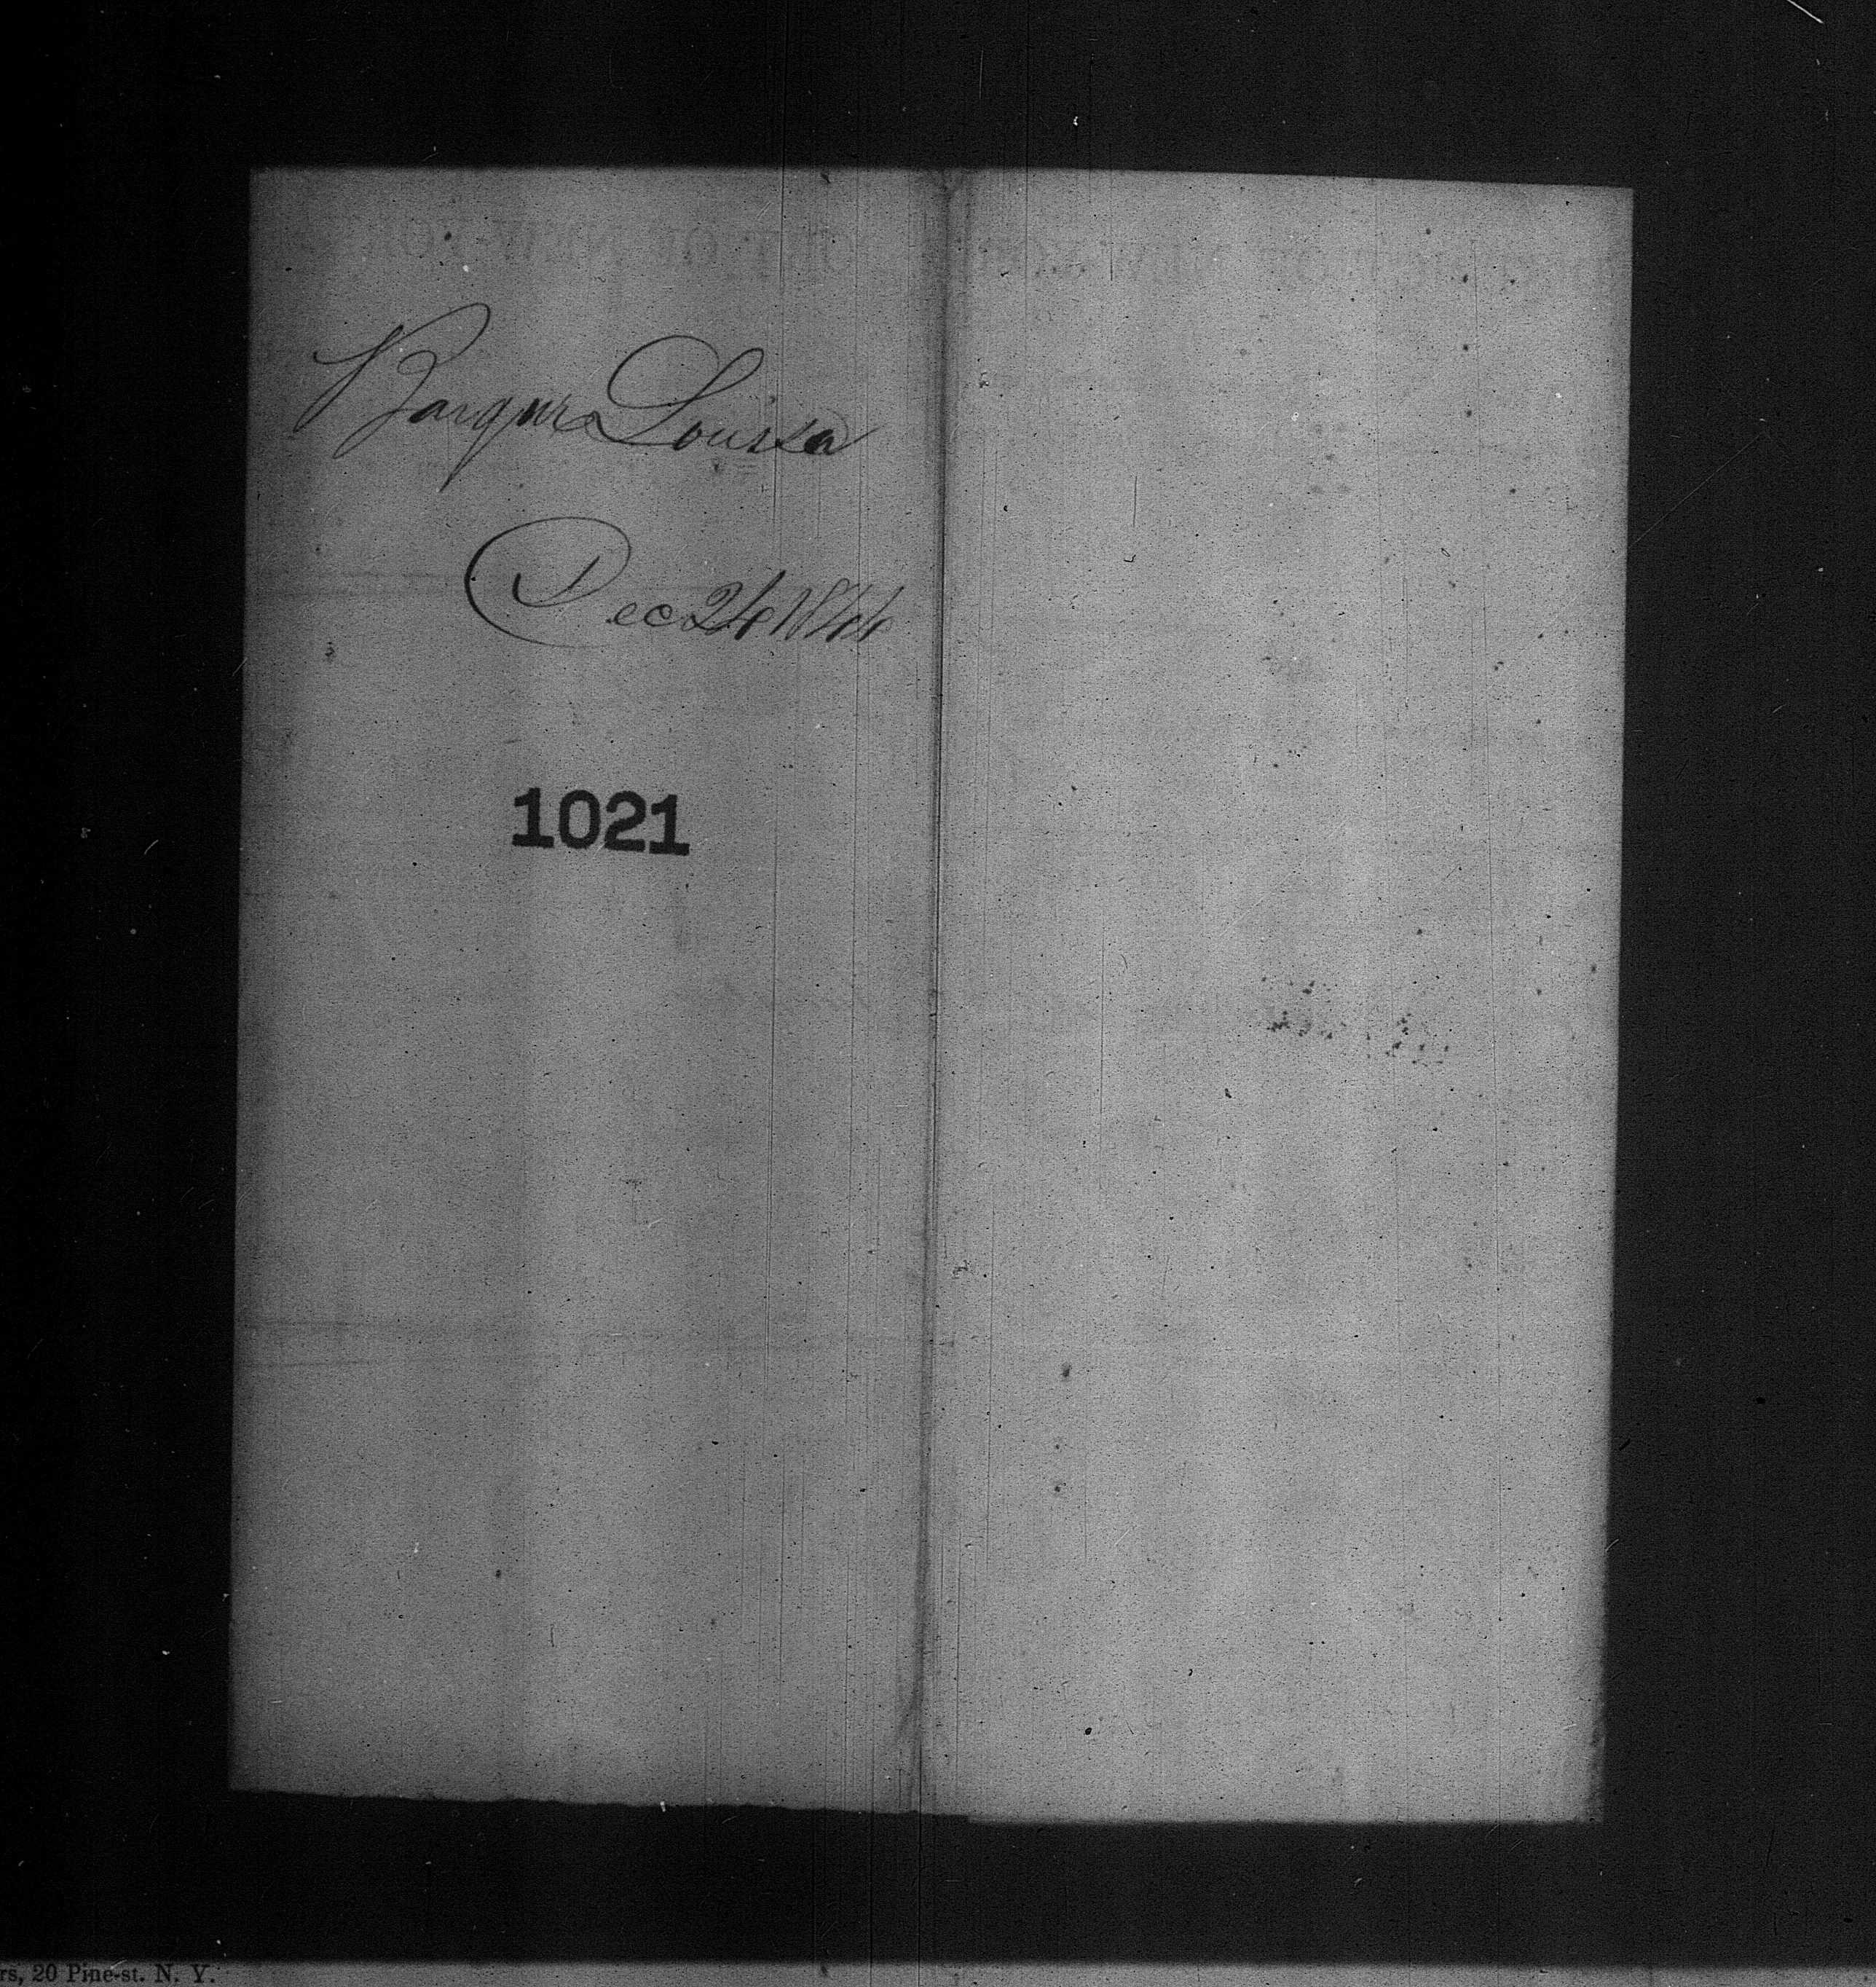 Barque Louisa
Dec 24 1844
1021
rs, 20 Pine-st. N. Y.